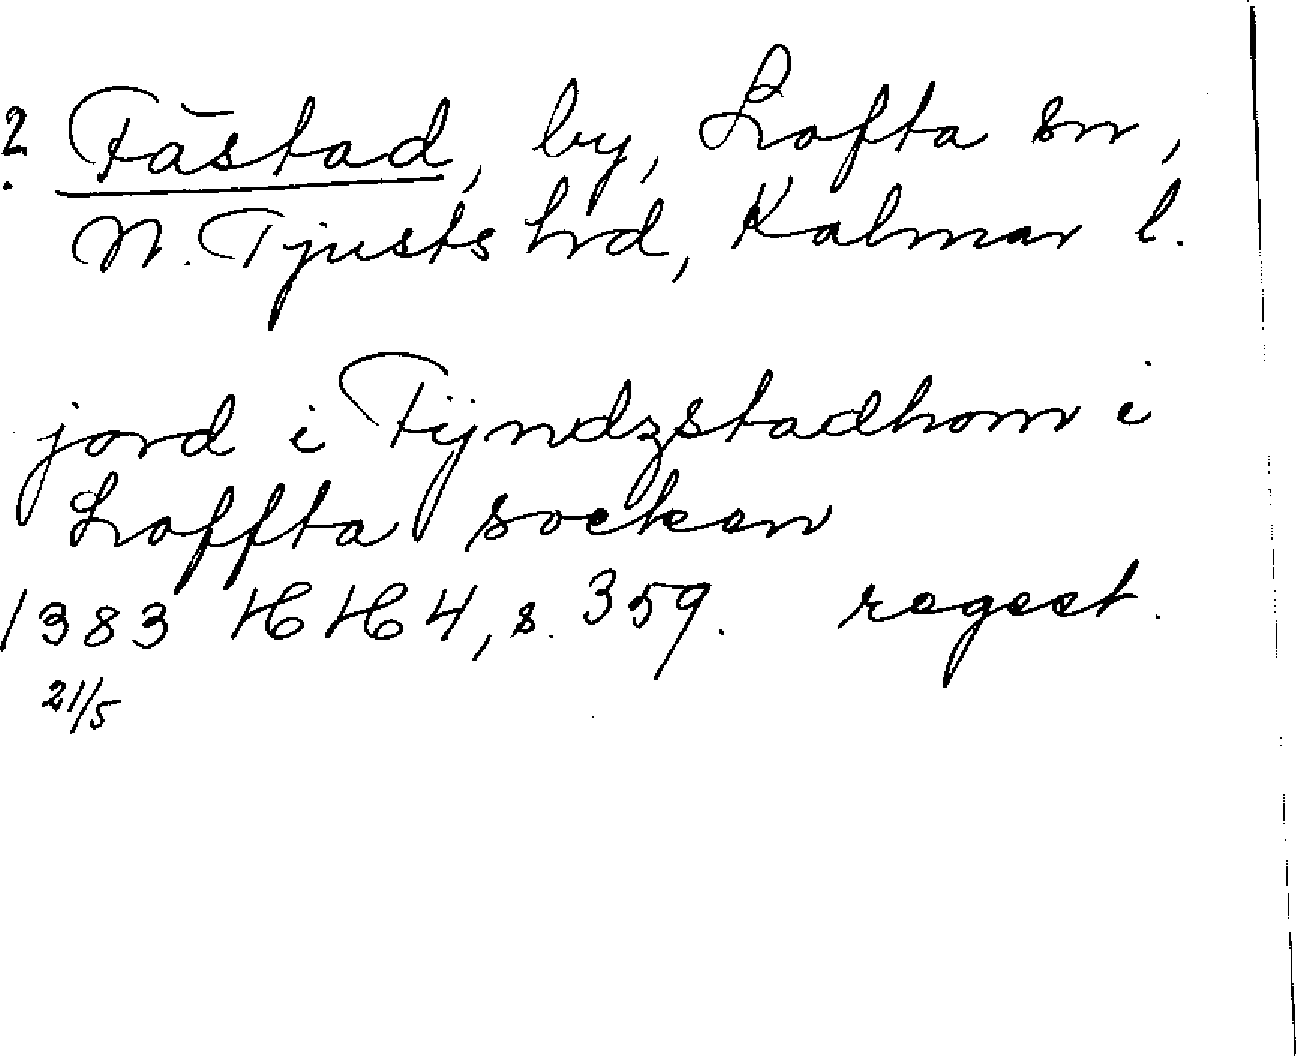 ? Fästad, by, Lofta sn,
N. Tjusts hrd, Kalmar l.
jord i Fijndzstadhom i
Loffta socken
1383 HH 4, s. 359. regest.
21/5